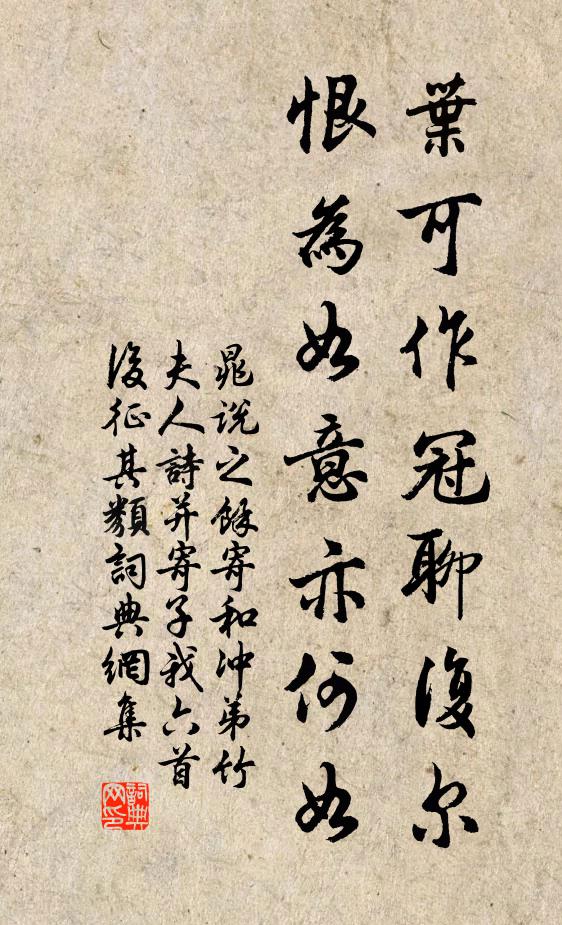 葉可作冠聊復尔
恨為如意亦何如
晁說之餘寄和冲弟竹
夫人詩并寄子我六首
復征其類詞典網集
詞典网印